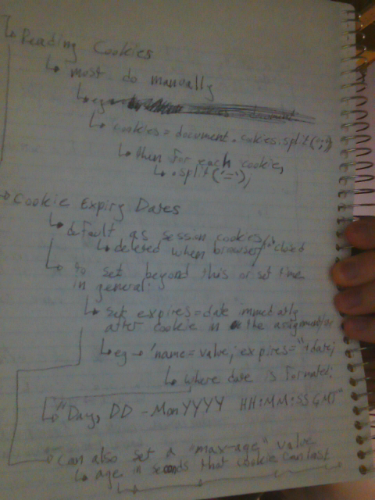 Reading Cookies
must do manually
eg
cookies = document.cookies.split(';')
then for each cookie,
.split('=')
Cookie Expiry Dates
default as session cookies
deleted when browser is closed
to set beyond this or set time
in general:
set expires=date immediately
after cookie in the assignment
eg → 'name=value; expires='+date;
where date is format:
"Day, DD-Mon YYYY HH:MM:SS GMT
can also set a "max-age" value
age in seconds that cookie can last